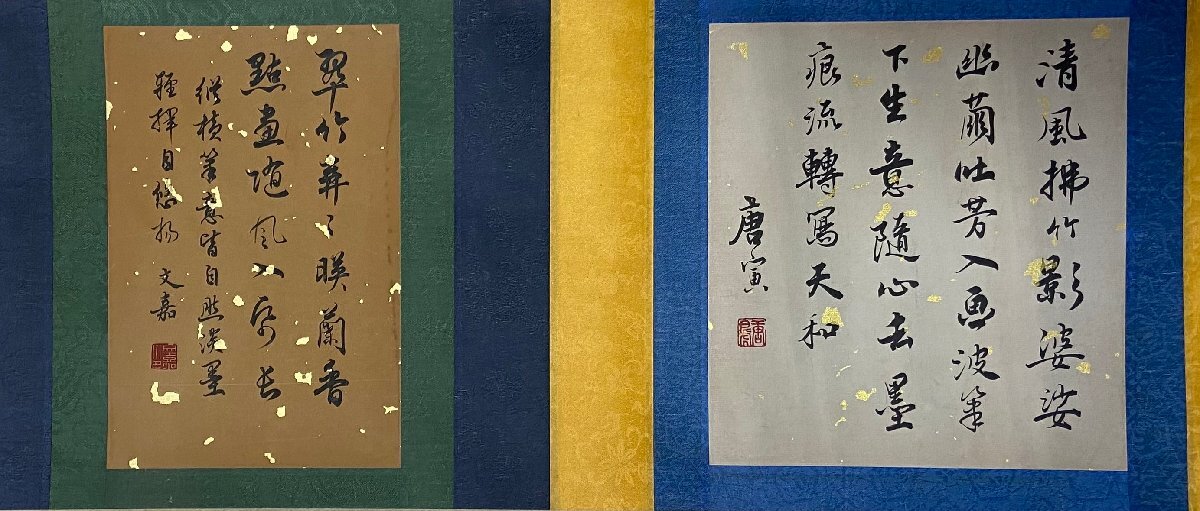 清風拂竹影婆娑
幽蘭吐芳入画波筆
下生意隨心去墨
痕流轉寫天和
唐寅
唐寅
翠竹萍々暎蘭香
點畫隨風入紙長
縱橫筆意皆自然淡墨
輕揮自悠揚 文嘉